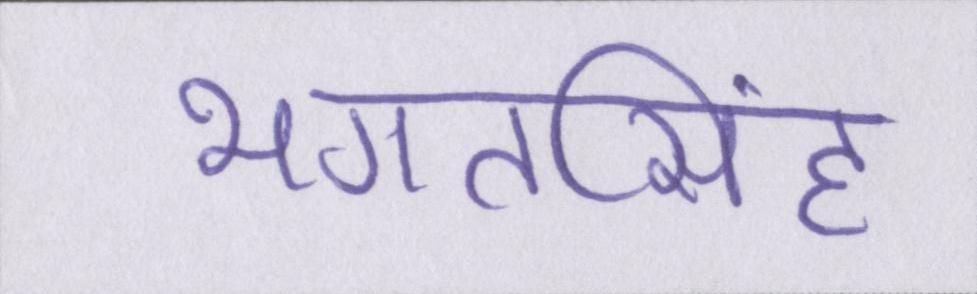 भगतसिंह